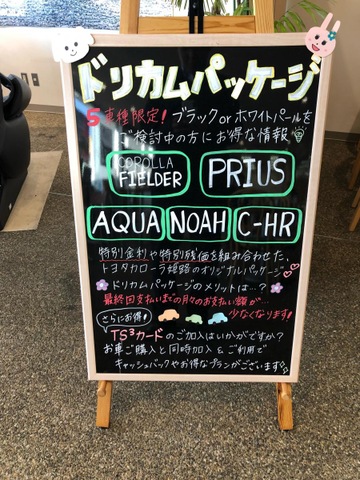 ドリカムパッケージ
5車種限定！ブラックorホワイトパールを
ご検討中の方にお得な情報
COROLLA
FIELDER
PRIUS
AQUA NOAH C-HR
特別金利や特別残価を組み合わせた、
トヨタカローラ姫路のオリジナルパッケージ
ドリカムパッケージのメリットは…？
最終回支払いまでの月々のお支払い額が…
少なくなります！
さらにお得！
TS³カードのご加入はいかがですか？
お車ご購入と同時加入&ご利用で
キャッシュバックやお得なプランがございます